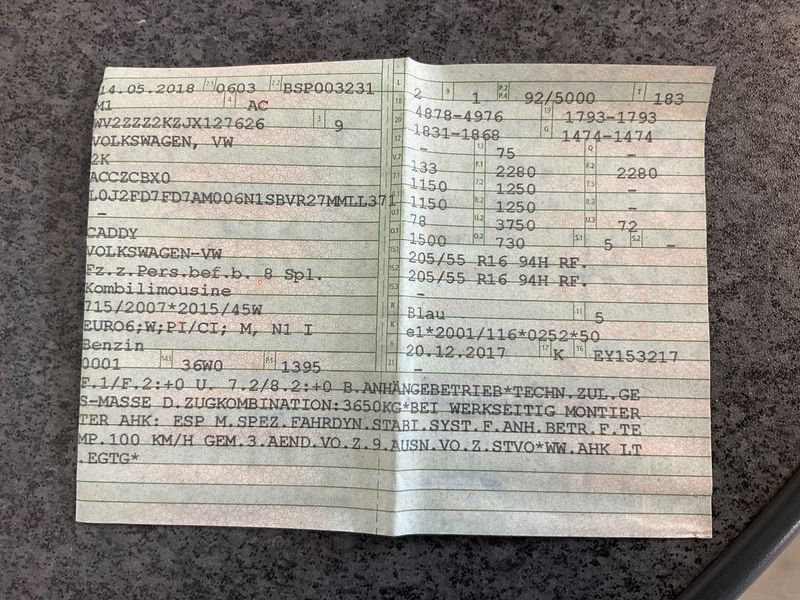 14.05.2018 2.1 0603 2.2 BSP003231
M1 4 AC
WV2ZZZ2KZJX127626 3 9
VOLKSWAGEN, VW
2K
ACCZCBX0
L0J2FD7FD7AM006N1SBVR27MMLL371
-
CADDY
VOLKSWAGEN-VW
Fz.z.Pers.bef.b. 8 Spl.
Kombilimousine
715/2007*2015/45W
EURO6;W;PI/CI; M, N1 I
Benzin
0001 14.1 36W0 P.1 1395
L 2 9 1 P.2 P.4 92/5000 T 183
18 4878-4976 19 1793-1793
20 1831-1868 G 1474-1474
12 - 13 75 Q -
V.7 133 F.1 2280 F.2 2280
7.1 1150 7.2 1250 7.3 -
8.1 1150 8.2 1250 8.3 -
U.1 78 U.2 3750 U.3 72
O.1 1500 O.2 730 S.1 5 S.2 -
15.1 205/55 R16 94H RF.
15.2 205/55 R16 94H RF.
15.3 -
R Blau 11 5
K e1*2001/116*0252*50
6 20.12.2017 17 K 16 EY153217
21 -
F.1/F.2:+0 U. 7.2/8.2:+0 B.ANHÄNGEBETRIEB*TECHN.ZUL.GE
S-MASSE D.ZUGKOMBINATION:3650KG*BEI WERKSEITIG MONTIER
TER AHK: ESP M.SPEZ.FAHRDYN.STABI.SYST.F.ANH.BETR.F.TE
MP.100 KM/H GEM.3.AEND.VO.Z.9.AUSN.VO.Z.STVO*WW.AHK LT
.EGTG*